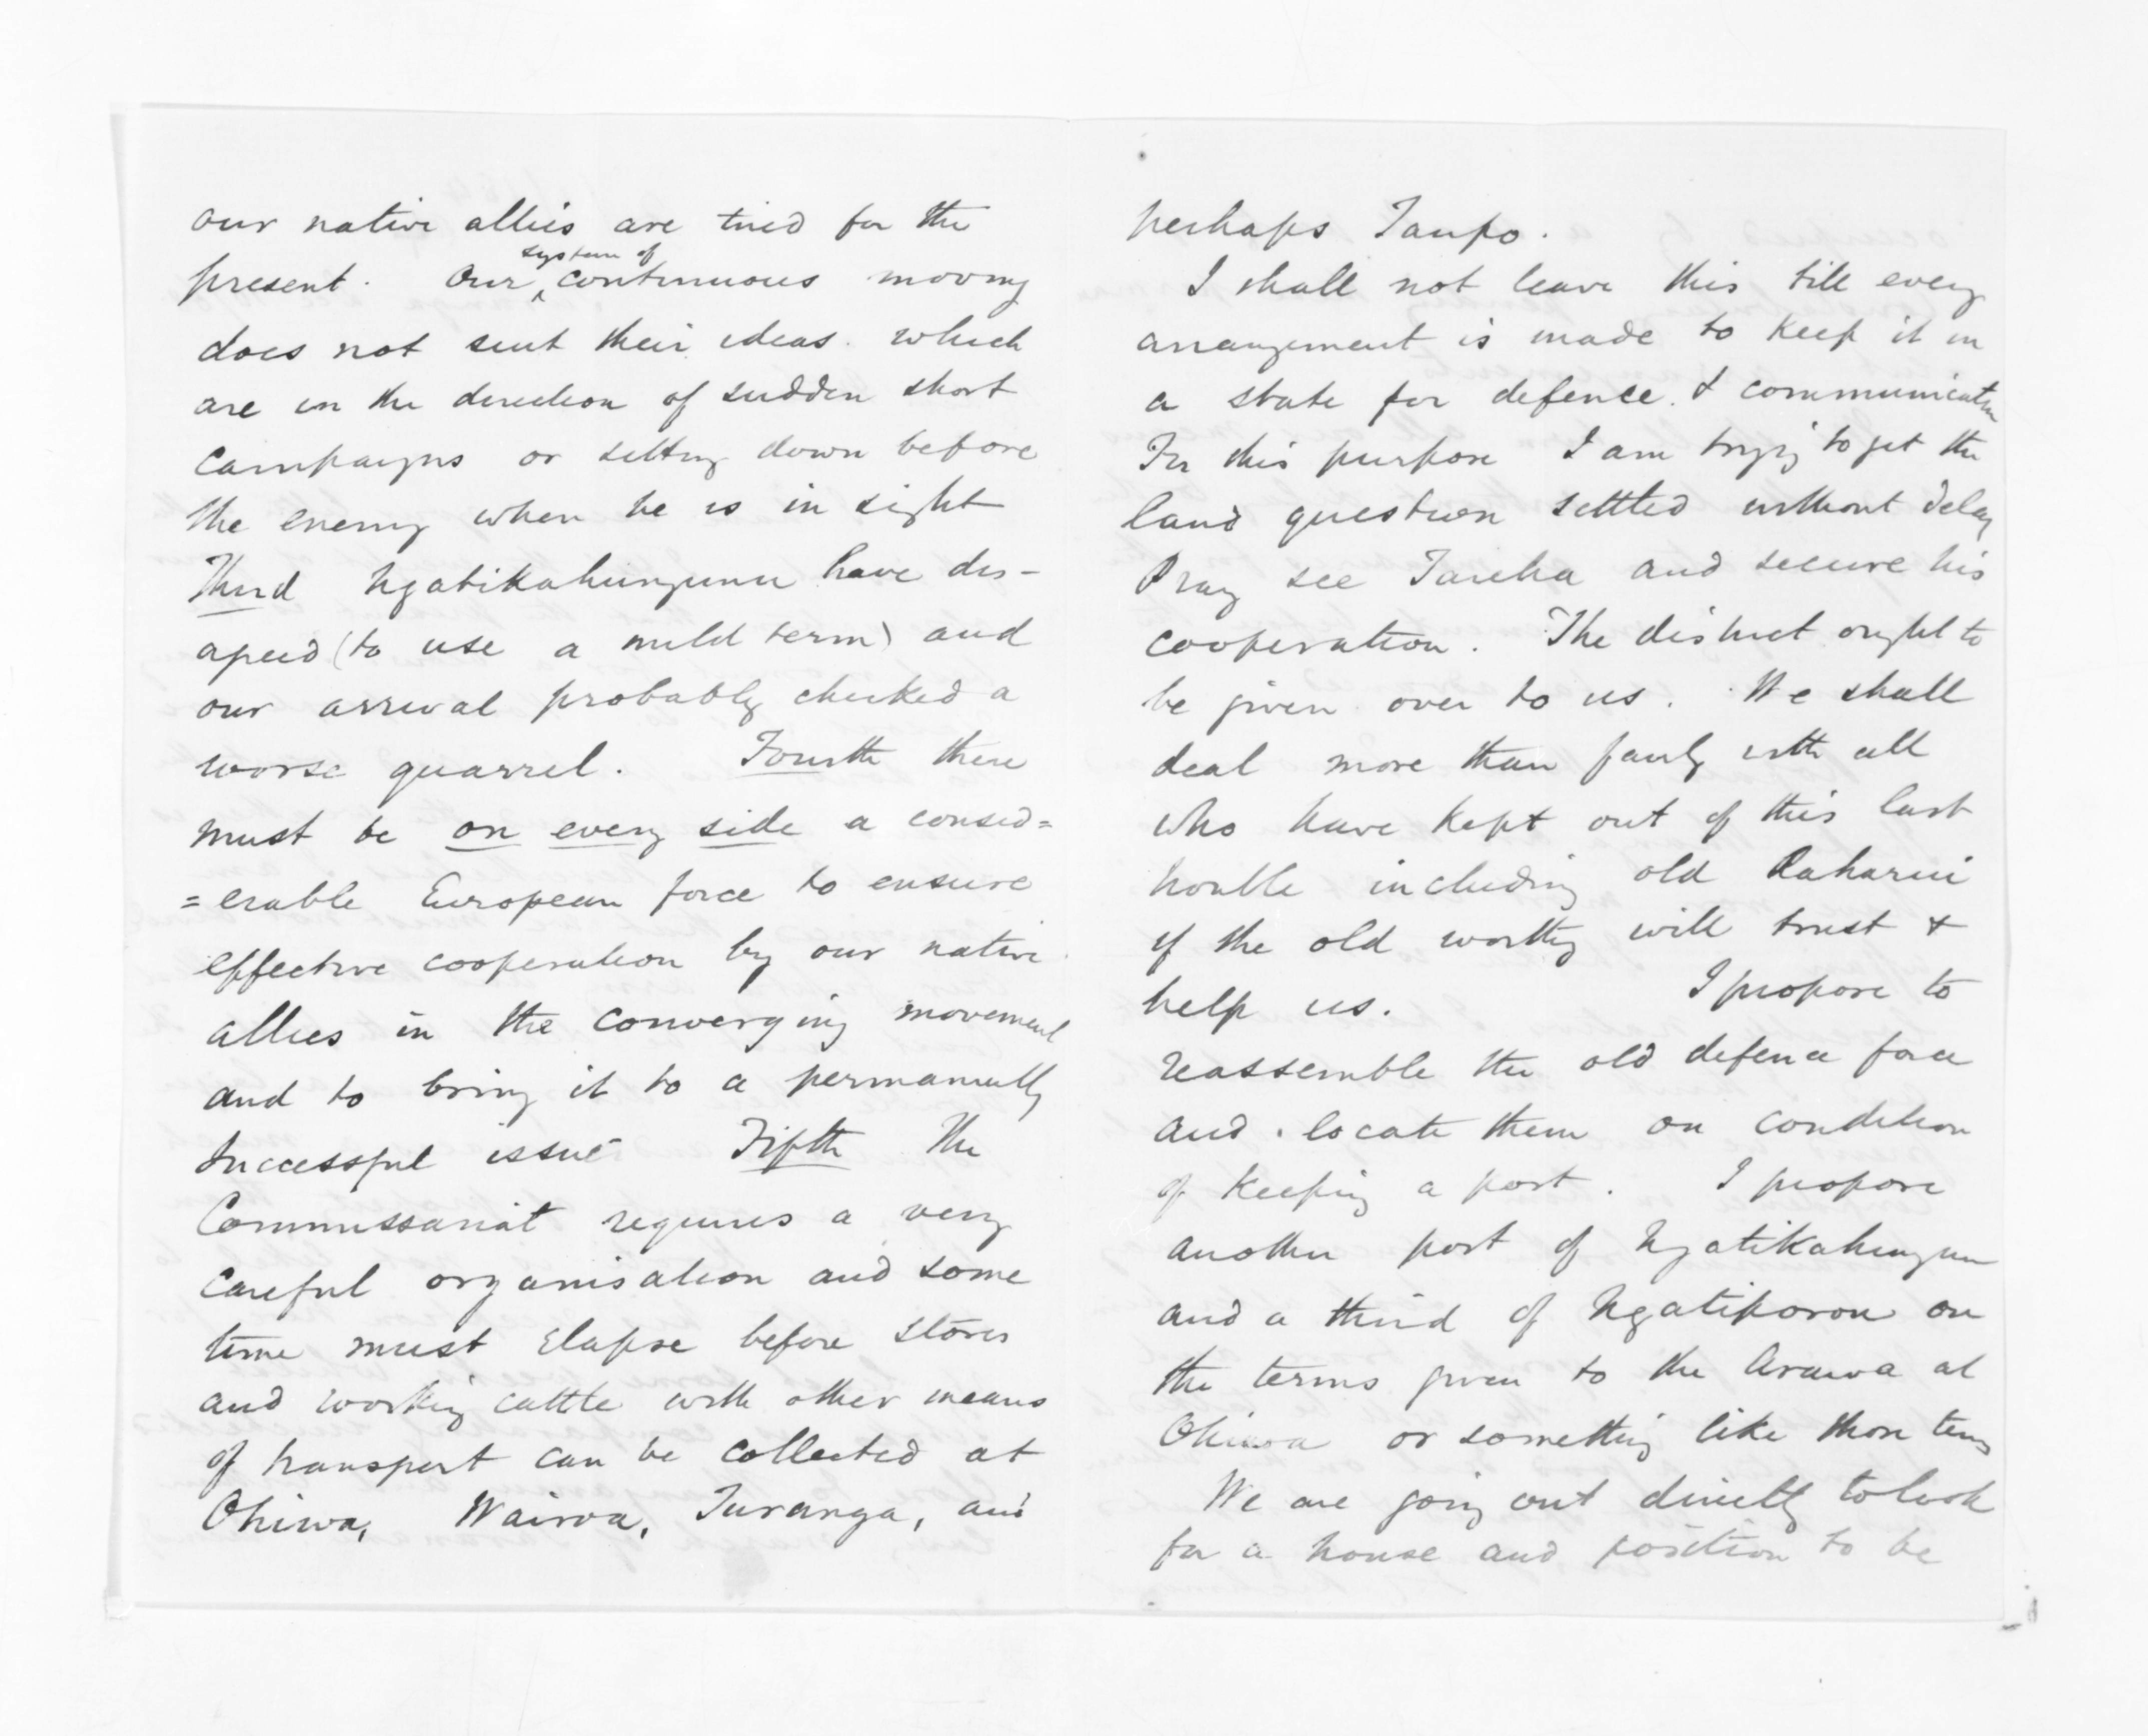 our native allies are tired for the
present. Our system of continuous moving
does not suit their ideas. which
are in the direction of sudden short
campaigns or sitting down before
the enemy when he is in sight
Third Ngatikahungunu have dis-
agreed (to use a mild term) and
our arrival probably checked a
worse quarrel. Fourth there
must be on every side a consid=
=erable European force to ensure
effective cooperation by our native
allies in the converging movement
and to bring it to a permanently
successful issue Fifth The
Commissariat requires a very
careful organisation and some
time must elapse before stores
and working cattle with other means
of transport can be collected at
Ohiwa, Wairoa, Turanga, and
perhaps Taupo.
I shall not leave this till every
arrangement is made to keep it in
a state for defence & communication
For this purpose I am trying to get the
land question settled without delay
Pray see Tareha and secure his
cooperation. The district ought to
be given over to us. We shall
deal more than fairly with all
who have kept out of this last
trouble including old
if the old worthy will trust &
help us. I propose to
reassemble the old defence force
and locate them on condition
of keeping a post. I propose
another post of Ngatikahungunu
and a third of Ngatiporou on
the terms given to the Arawa at
Ohiwa or something like those terms
We are going out directly to look
for a house and position to be